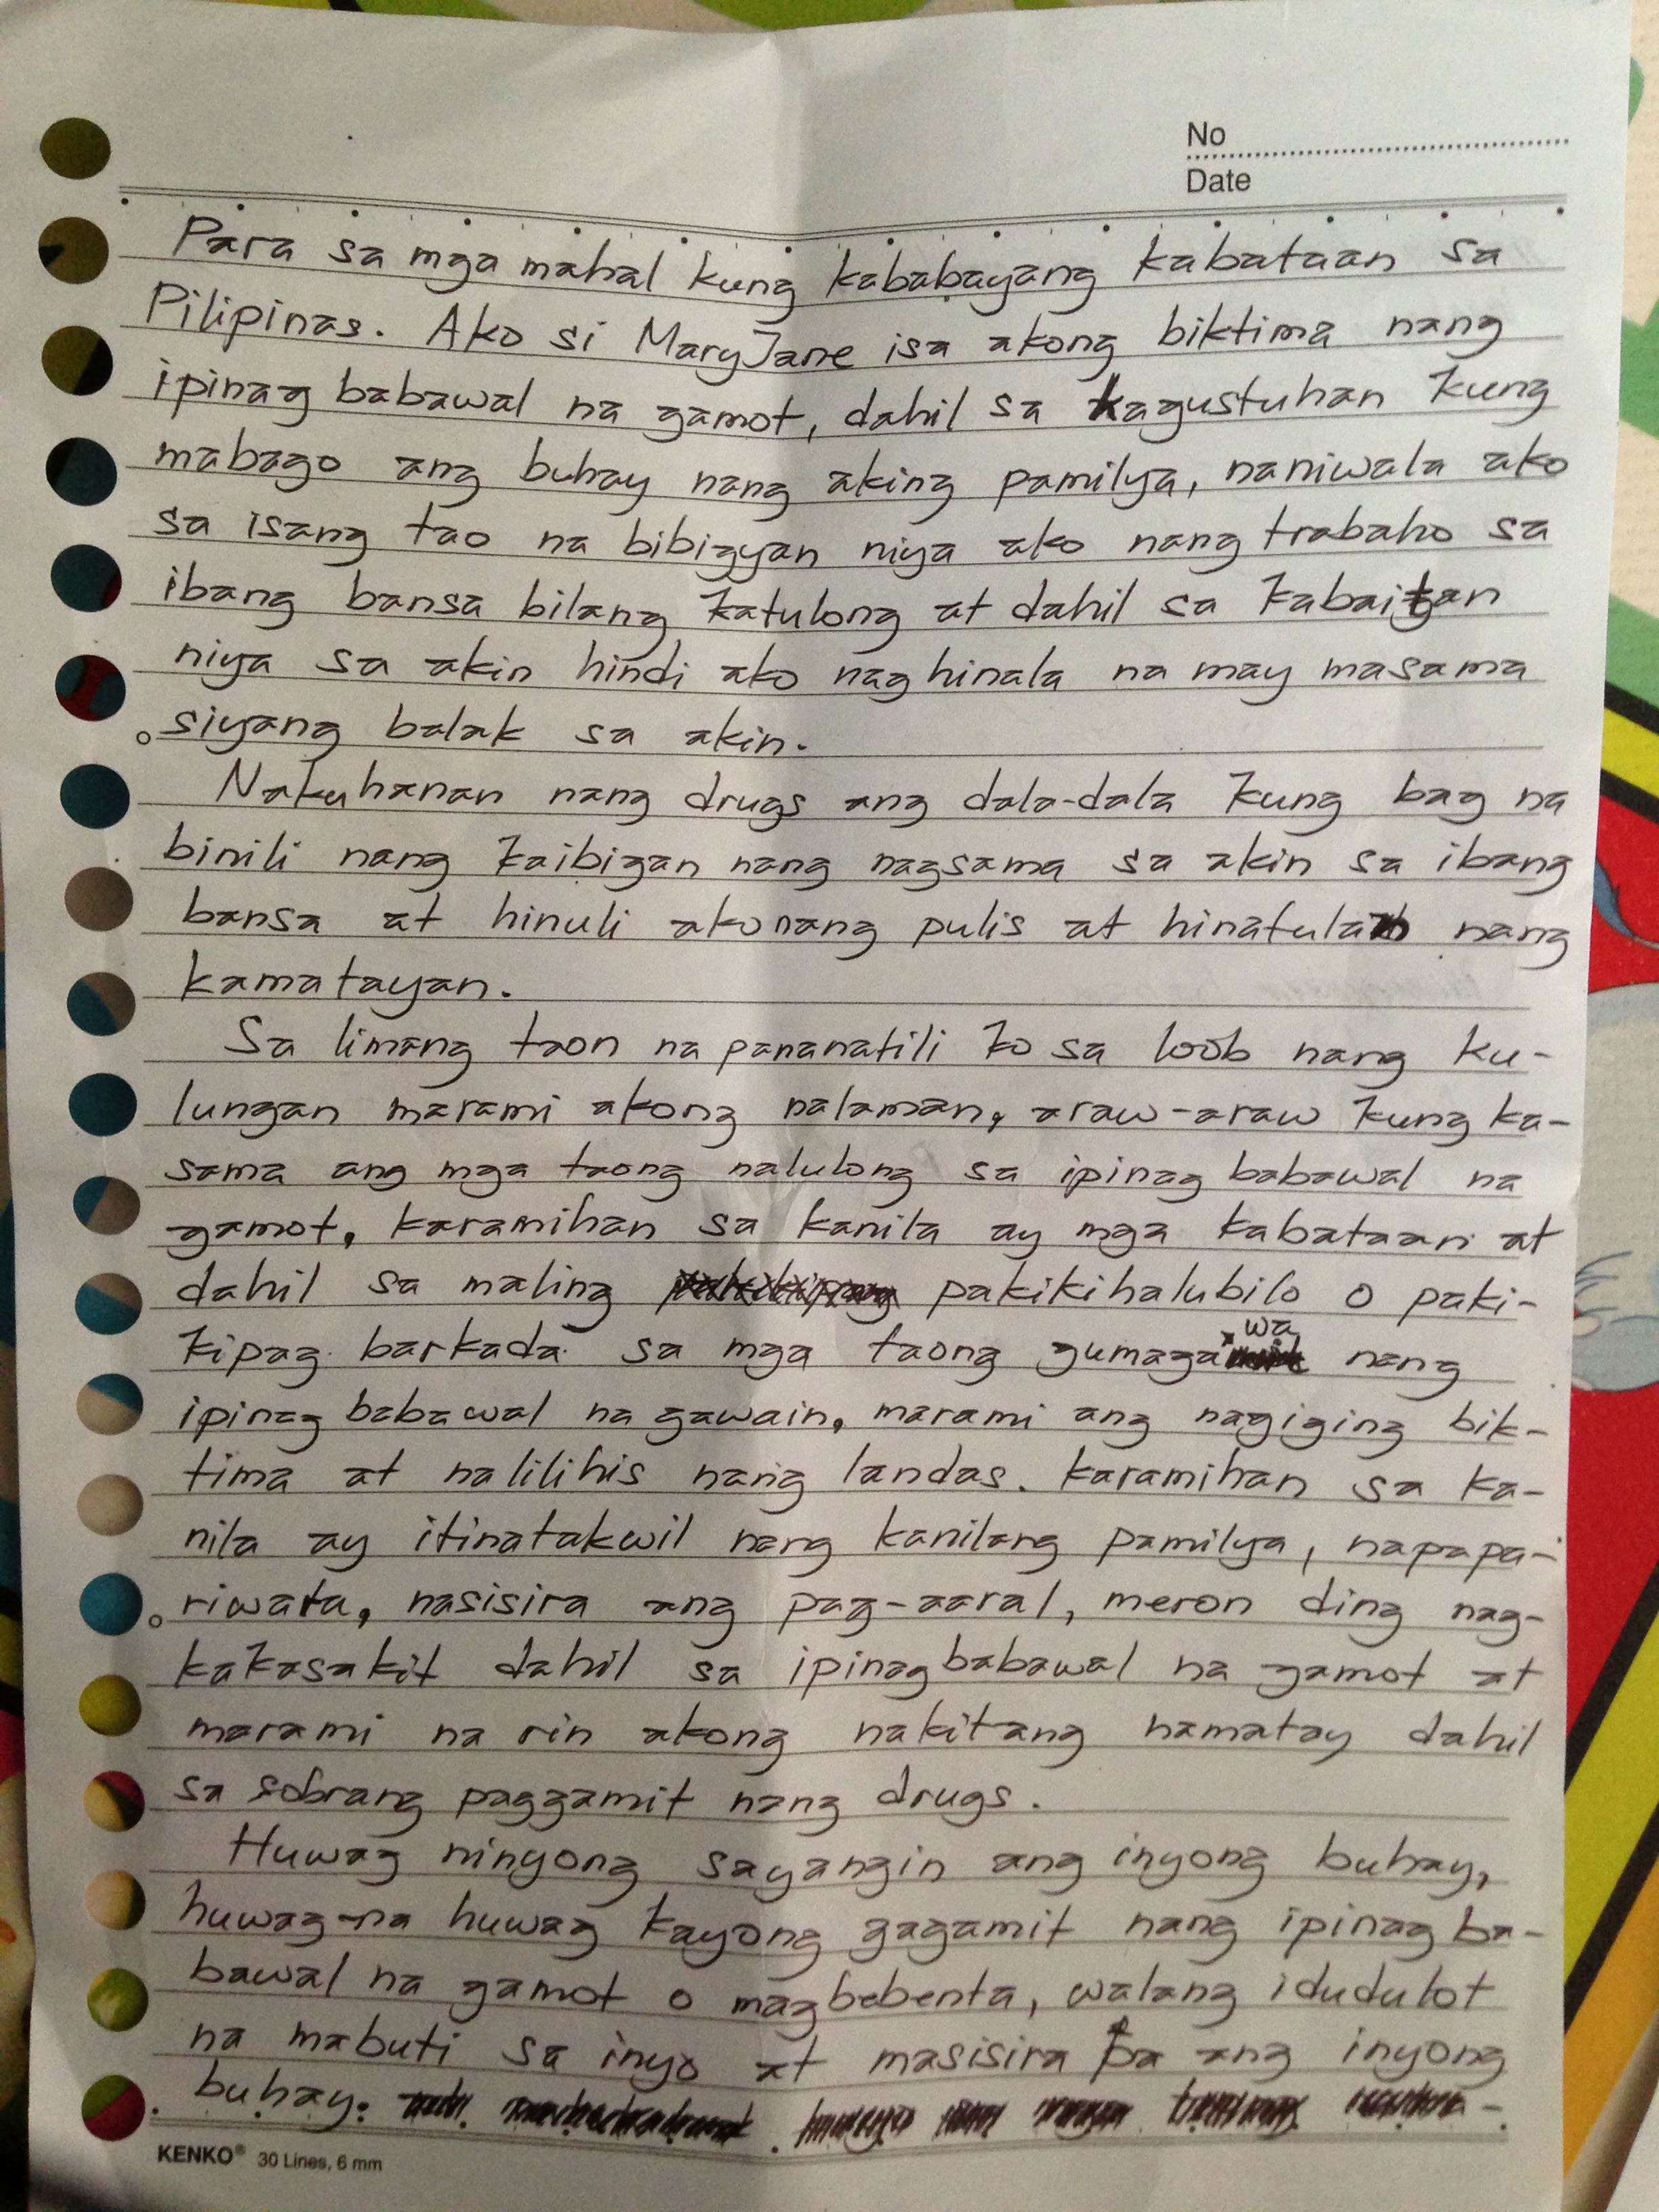 No
Date
Para sa mga mahal kung kababayang kabataan sa
Pilipinas. Ako si Mary Jane isa akong biktima nang
ipinag babawal na gamot, dahil sa kagustuhan kung
mabago ang buhay nang aking pamilya, naniwala ako
sa isang tao na bibigyan niya ako nang trabaho sa
ibang bansa bilang katulong at dahil sa kabaitan
niya sa akin hindi ako naghinala na may masama
siyang balak sa akin.
Nakuhanan nang drugs ang dala-dala kung bag na
binili nang kaibigan nang nagsama sa akin sa ibang
bansa at hinuli ako nang pulis at hinatulan nang
kamatayan.
Sa limang taon na pananatili ko sa loob nang ku-
lungan marami akong nalaman, araw-araw kung ka-
sama ang mga taong nalulong sa ipinag babawal na
gamot, karamihan sa kanila ay mga kabataan at
dahil sa maling pakikihalubilo o paki-
kipag barkada sa mga taong gumagawa nang
ipinag babawal na gawain, marami ang nagiging bik-
tima at nalilihis nang landas. karamihan sa ka-
nila ay itinatakwil nang kanilang pamilya, napapa-
riwara, nasisira ang pag-aaral, meron ding nag-
kakasakit dahil sa ipinagbabawal na gamot at
marami na rin akong nakitang namatay dahil
sa sobrang paggamit nang drugs.
Huwag ninyong sayangin ang inyong buhay,
huwag-na huwag kayong gagamit nang ipinag ba-
bawal na gamot o magbebenta, walang idudulot
na mabuti sa inyo at masisira pa ang inyong
buhay.
KENKO® 30 Lines, 6 mm